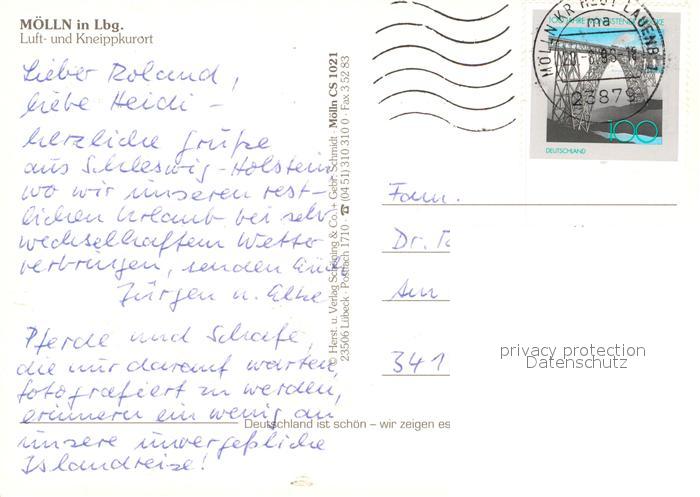 MÖLLN in Lbg.
Luft- und Kneippkurort
Lieber Roland,
liebe Heidi –
herzliche Grüße
aus Schleswig-Holstein
wo wir unseren rest-
lichen Urlaub bei sehr
wechselhaftem Wetter
verbringen, senden Euch
Jürgen u. Elke
Pferde und Schafe,
die nur darauf warten,
fotografiert zu werden,
erinnern ein wenig an
unsere unvergeßliche
Islandreise!
© Herst. u. Verlag Schöning & Co. + Gebr. Schmidt · Mölln CS 1021
23506 Lübeck · Postfach 1710 · ☎ (04 51) 310 310 0 · Fax 3 52 83
Deutschland ist schön – wir zeigen es
MÖLLN KR HZGT LAUENB
ma
23879
100
DEUTSCHLAND
Fam.
Dr.
Am
341
privacy protection
Datenschutz